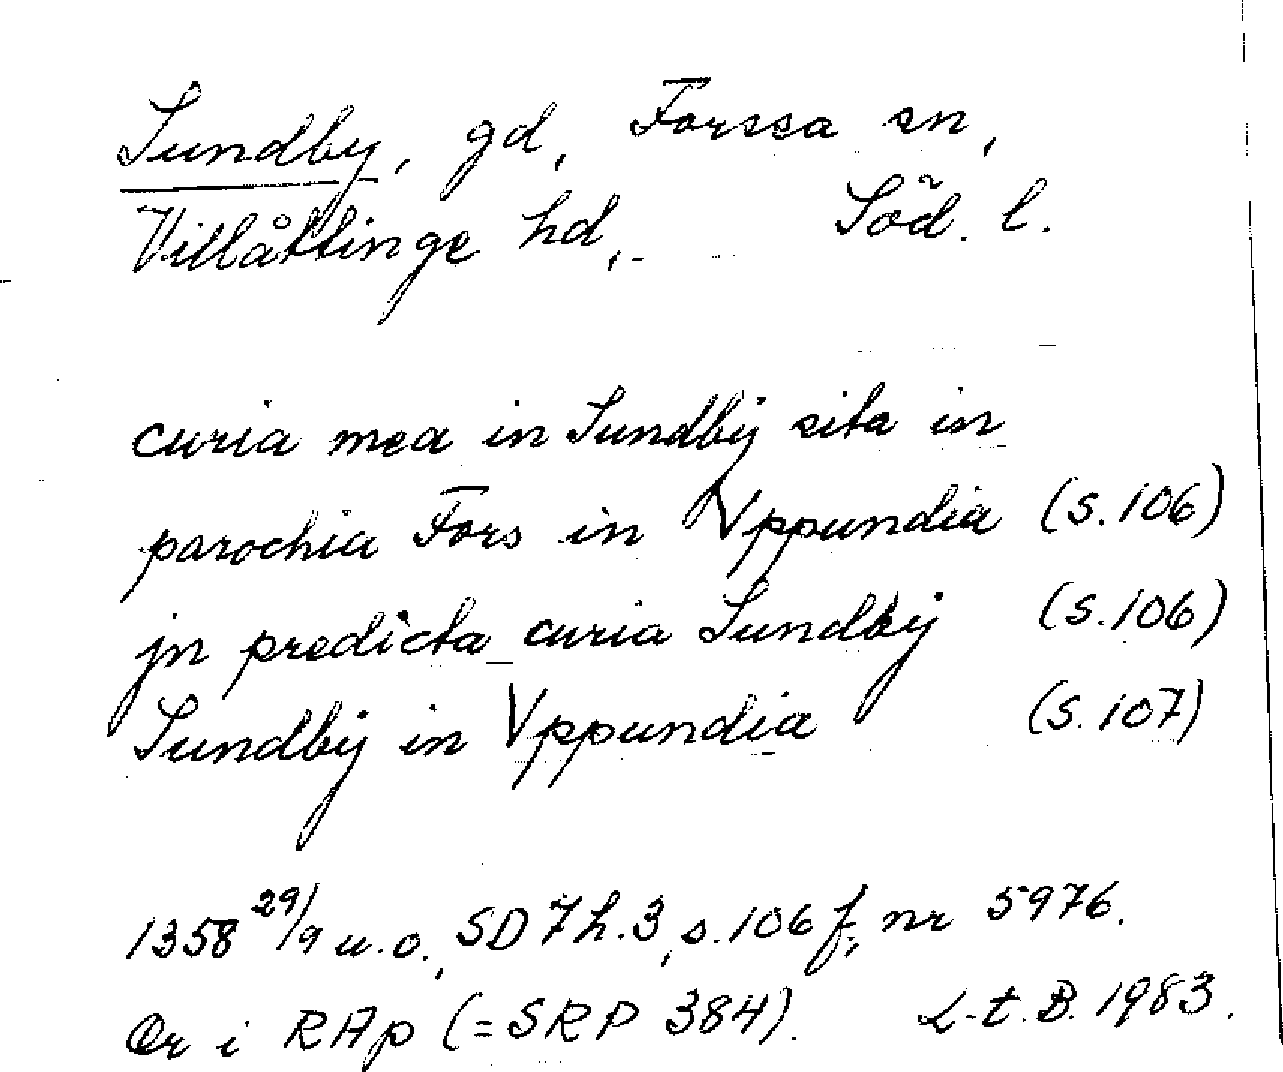 Sundby, gd, Forssa sn,
Villåttinge hd, Söd. l.
curia mea in Sundbij sita in
parochia Fors in Vppundia (s.106)
jn predicta curia Sundbij (s.106)
Sundbij in Vppundia (s.107)
1358 29/9 u.o., SD 7 h.3, s.106 f, nr 5976.
Or i RAp (=SRP 384). L-t. B. 1983.